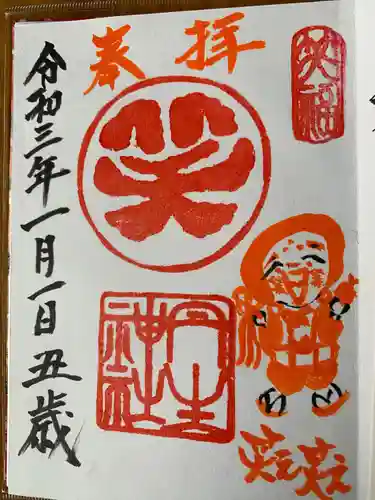 奉拝
笑福
笑
丹生
神社
笑え笑え
令和三年一月一日丑歳